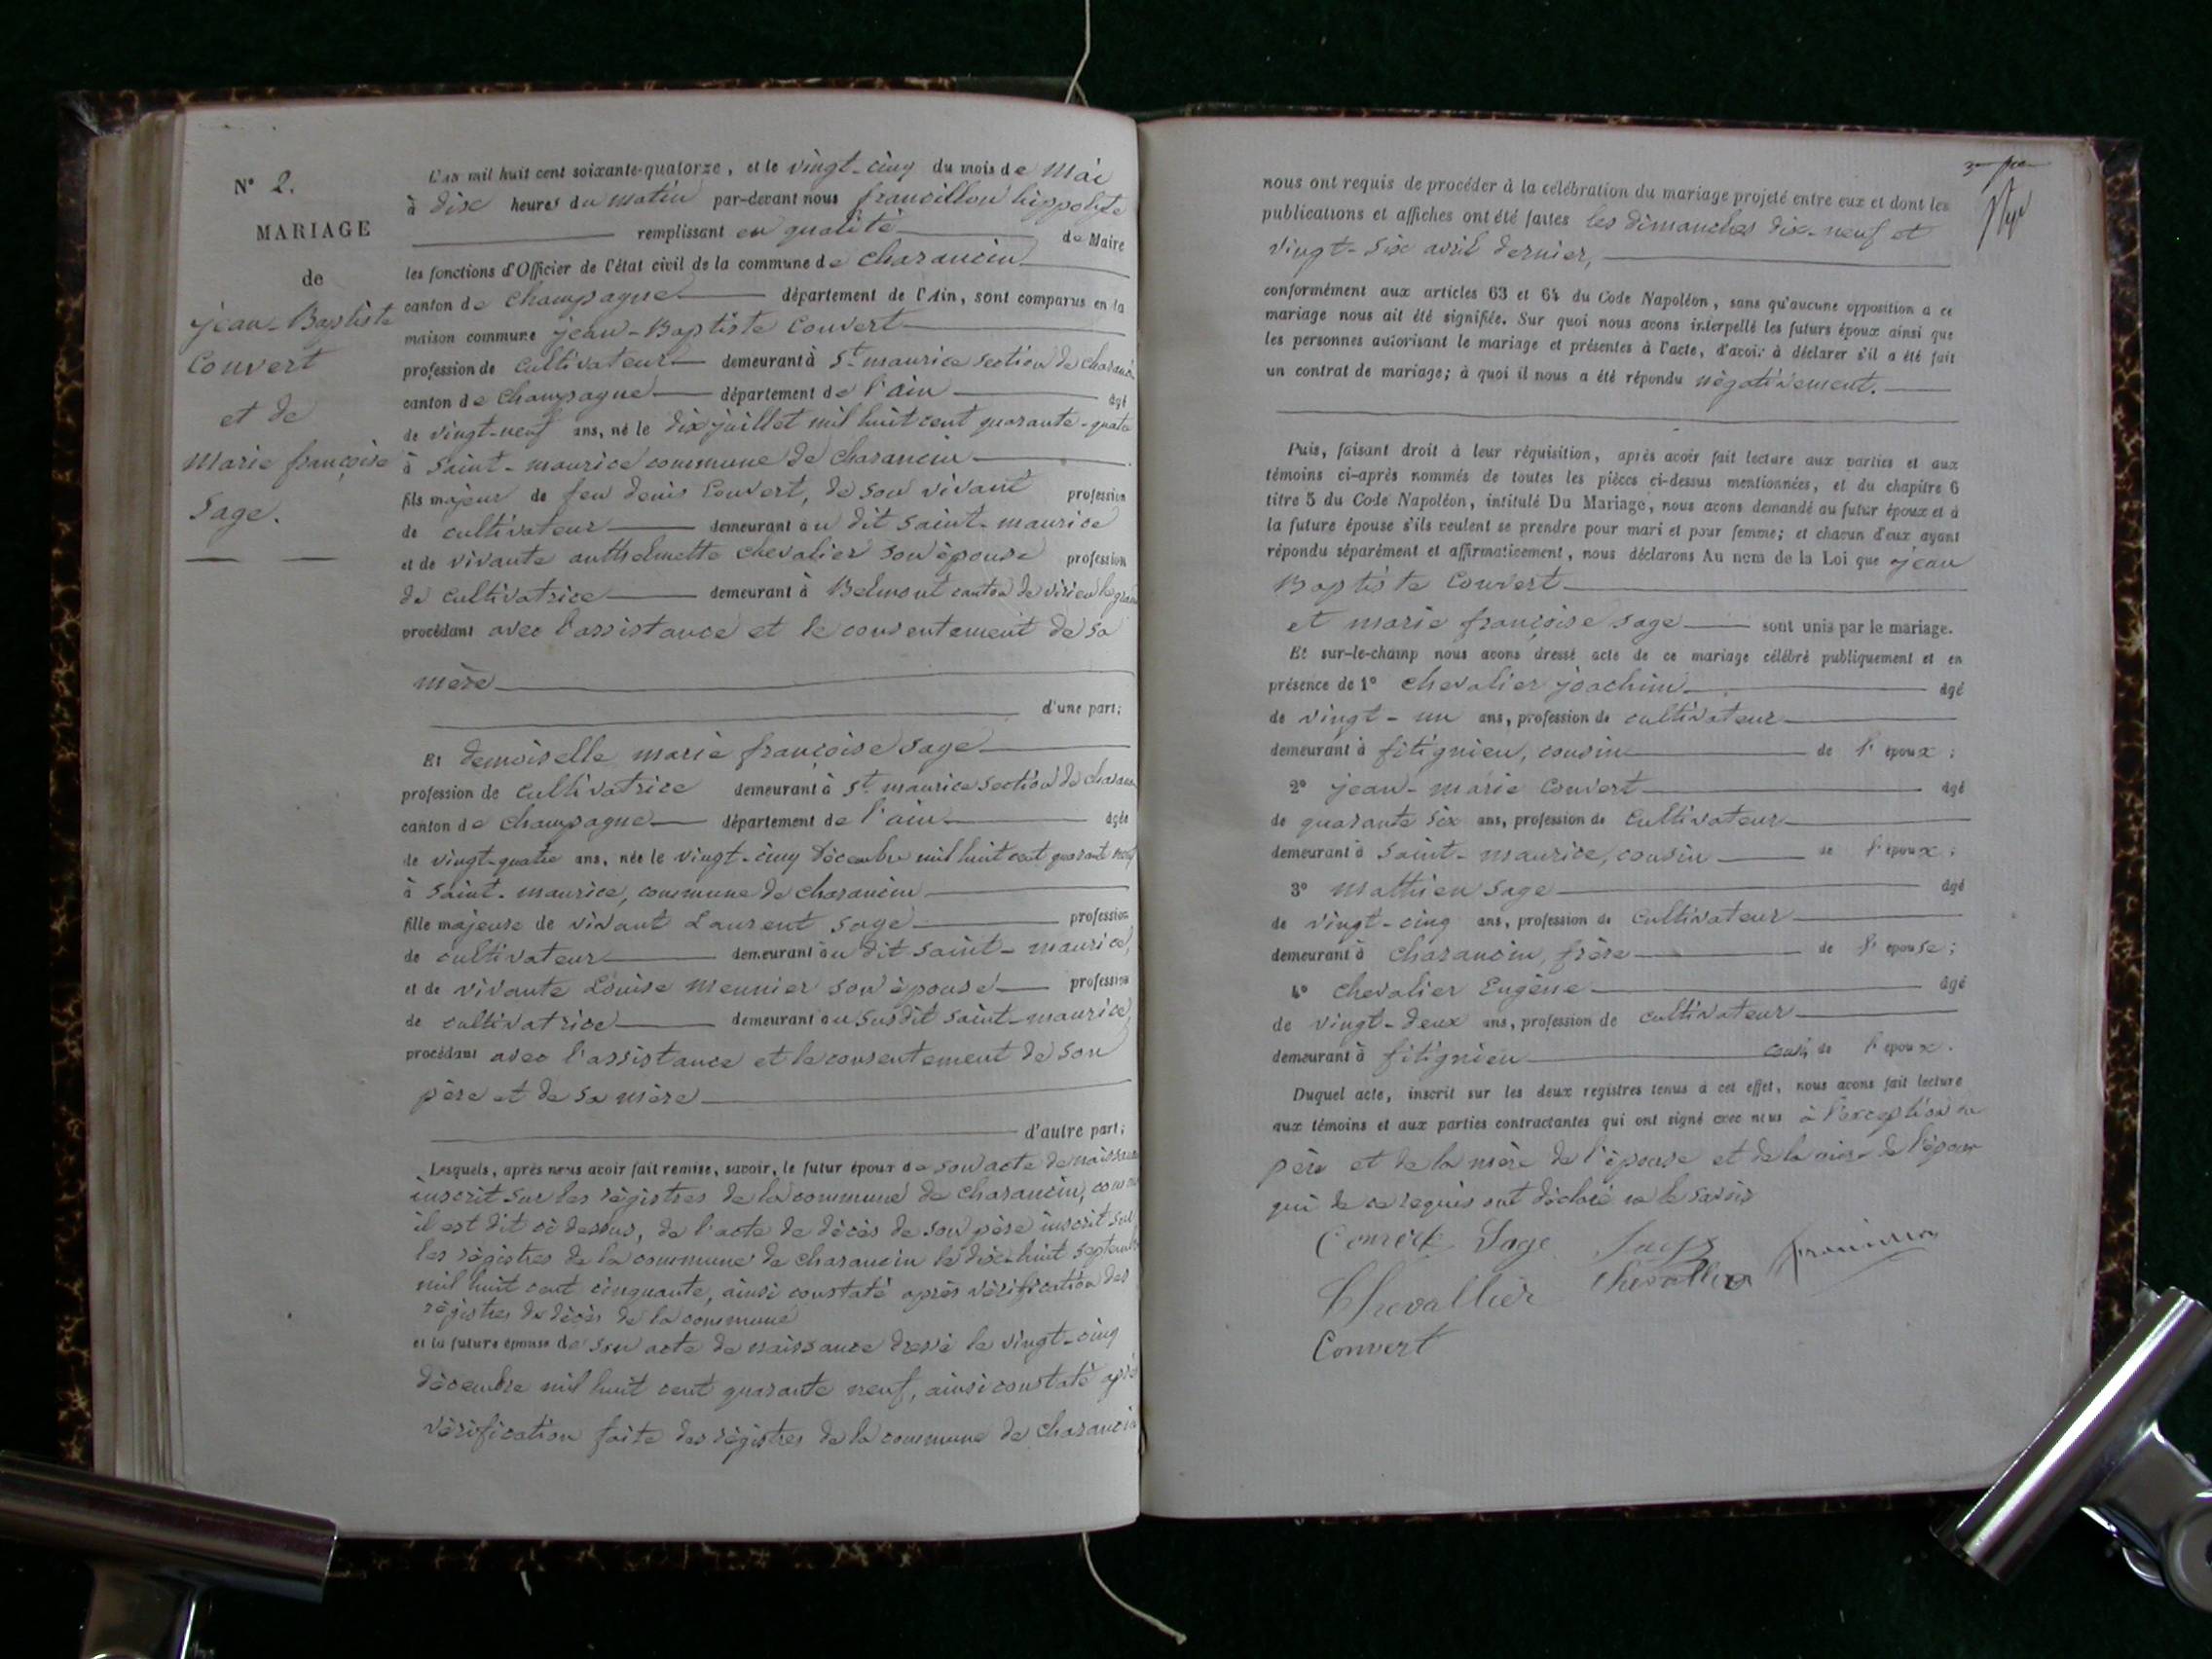 N° 2.
MARIAGE
de
jean-Baptiste
Convert
et de
Marie françoise
Sage.
L'an mil huit cent soixante-quatorze, et le vingt-cinq du mois de Mai
à dix heures du matin par-devant nous francillon hippolyte
remplissant en qualité de Maire
les fonctions d'Officier de l'état civil de la commune de charancin
canton de champagne département de l'Ain, sont comparus en la
maison commune jean-Baptiste Convert
profession de cultivateur demeurant à St maurice section de charancin
canton de champagne département de l'ain âgé
de vingt-neuf ans, né le dix juillet mil huit cent quarante-quatre
à saint-maurice commune de charancin
fils majeur de feu denis Convert, de son vivant profession
de cultivateur demeurant au dit saint-maurice
et de vivante anthelmette chevalier son épouse profession
de cultivatrice demeurant à Belmont canton de virieu le grand
procédant avec l'assistance et le consentement de sa
mère
d'une part;
Et demoiselle marie françoise sage
profession de cultivatrice demeurant à St maurice section de charancin
canton de champagne département de l'ain âgée
de vingt-quatre ans, née le vingt-cinq décembre mil huit cent quarante neuf
à saint-maurice, commune de charancin
fille majeure de vivant Laurent sage profession
de cultivateur demeurant au dit saint-maurice,
et de vivante Louise meunier son épouse profession
de cultivatrice demeurant au susdit saint-maurice,
procédant avec l'assistance et le consentement de son
père et de sa mère
d'autre part;
Lesquels, après nous avoir fait remise, savoir, le futur époux de son acte de naissance
inscrit sur les régistres de la commune de charancin, comme
il est dit ci dessus, de l'acte de décès de son père inscrit sur
les régistres de la commune de charancin le dix-huit septembre
mil huit cent cinquante, ainsi constaté après vérification des
régistres de décès de la commune
et la future épouse de son acte de naissance dressé le vingt-cinq
décembre mil huit cent quarante neuf, ainsi constaté après
vérification faite des régistres de la commune de charancin
nous ont requis de procéder à la célébration du mariage projeté entre eux et dont les
publications et affiches ont été faites les dimanches dix-neuf et
vingt-six avril dernier,
conformément aux articles 63 et 64 du Code Napoléon, sans qu'aucune opposition a ce
mariage nous ait été signifiée. Sur quoi nous avons interpellé les futurs époux ainsi que
les personnes autorisant le mariage et présentes à l'acte, d'avoir à déclarer s'il a été fait
un contrat de mariage; à quoi il nous a été répondu négativement.
Puis, faisant droit à leur réquisition, après avoir fait lecture aux parties et aux
témoins ci-après nommés de toutes les pièces ci-dessus mentionnées, et du chapitre 6
titre 5 du Code Napoléon, intitulé Du Mariage, nous avons demandé au futur époux et à
la future épouse s'ils veulent se prendre pour mari et pour femme; et chacun d'eux ayant
répondu séparément et affirmativement, nous déclarons Au nom de la Loi que jean
Baptiste Convert
et marie françoise sage sont unis par le mariage.
Et sur-le-champ nous avons dressé acte de ce mariage célébré publiquement et en
présence de 1° chevalier joachim âgé
de vingt-un ans, profession de cultivateur
demeurant à fitignieu, cousin de l'époux;
2° jean-marie Convert âgé
de quarante six ans, profession de cultivateur
demeurant à saint-maurice, cousin de l'époux;
3° mathieu sage âgé
de vingt-cinq ans, profession de cultivateur
demeurant à charancin, frère de l'épouse;
4° chevalier Eugène âgé
de vingt-deux ans, profession de cultivateur
demeurant à fitignieu cousin de l'époux.
Duquel acte, inscrit sur les deux registres tenus à cet effet, nous avons fait lecture
aux témoins et aux parties contractantes qui ont signé avec nous à l'exception du
père et de la mère de l'épouse et de la mère de l'époux
qui de ce requis ont déclaré ne le savoir
Convert Sage Sage francillon
Chevallier Chevallier
Convert